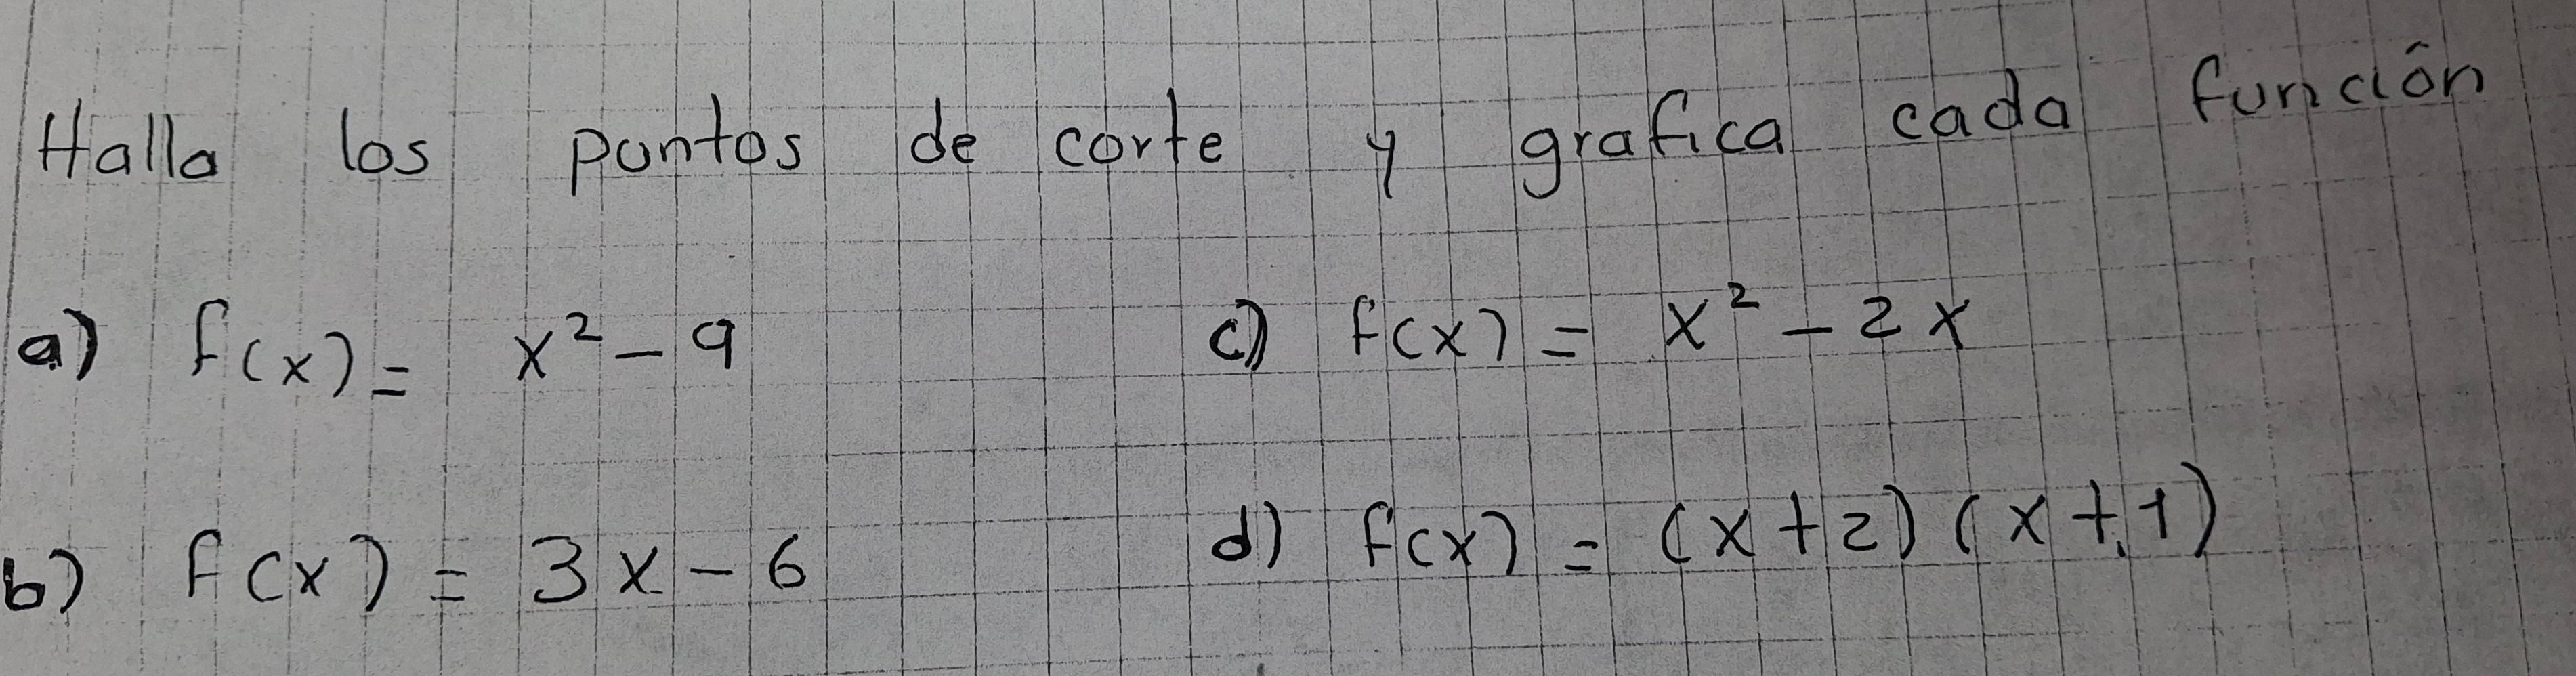 Halla los puntos de corte y grafica cada función
a) f(x) = x² - 9
c) f(x) = x² - 2x
b) f(x) = 3x - 6
d) f(x) = (x + 2) (x + 1)